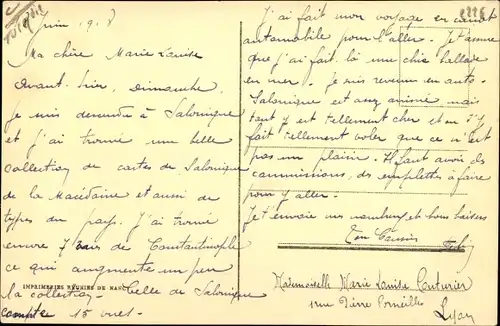 Juin 1918
Ma chère Marie Louise
Avant-hier, Dimanche,
Je suis descendu à Salonique
et j'ai trouvé une belle
collection de cartes de Salonique
de la Macédoine et aussi de
types du pays. J'ai trouvé
encore 7 vues de Constantinople
ce qui augmente un peu
la collection. Celle de Salonique
compte 15 vues.
IMPRIMERIES RÉUNIES DE NANCY
J'ai fait mon voyage en canot
automobile pour l'aller. Je t'assure
que j'ai fait là une chic ballade
en mer. Je suis revenu en auto.
Salonique est assez animé mais
tout y est tellement cher et on s'y
fait tellement voler que ce n'est
pas un plaisir. Il faut avoir des
commissions, des emplettes à faire
pour y aller.
Je t'envoie mes nombreux et bons baisers
Ton Cousin
Mademoiselle Marie Louise Couturier
rue Pierre Corneille
Lyon